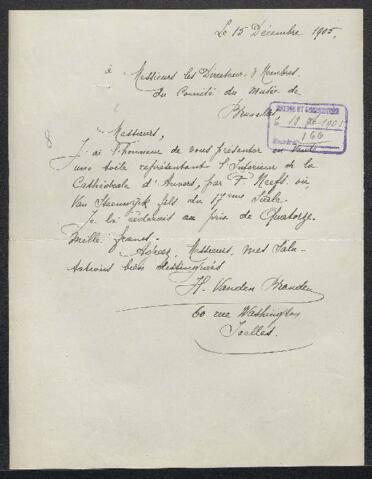 Le 15 Décembre 1905.
à Messieurs les Directeur & Membres.
du Comité du Musée de
Bruxelles,
8
Messieurs,
J'ai l'honneur de vous présenter en vente
une toile représentant l'Interieur de la
Cathédrale d'Anvers, par P. Neefs ou
Van Steenwyck fils du 17me Siècle.
Je la cèderais au prix de Quatorze
Mille francs.
Agréez, Messieurs, mes Salu-
tations bien distinguées
H. Vanden Branden
60 rue Washington
Ixelles.
166